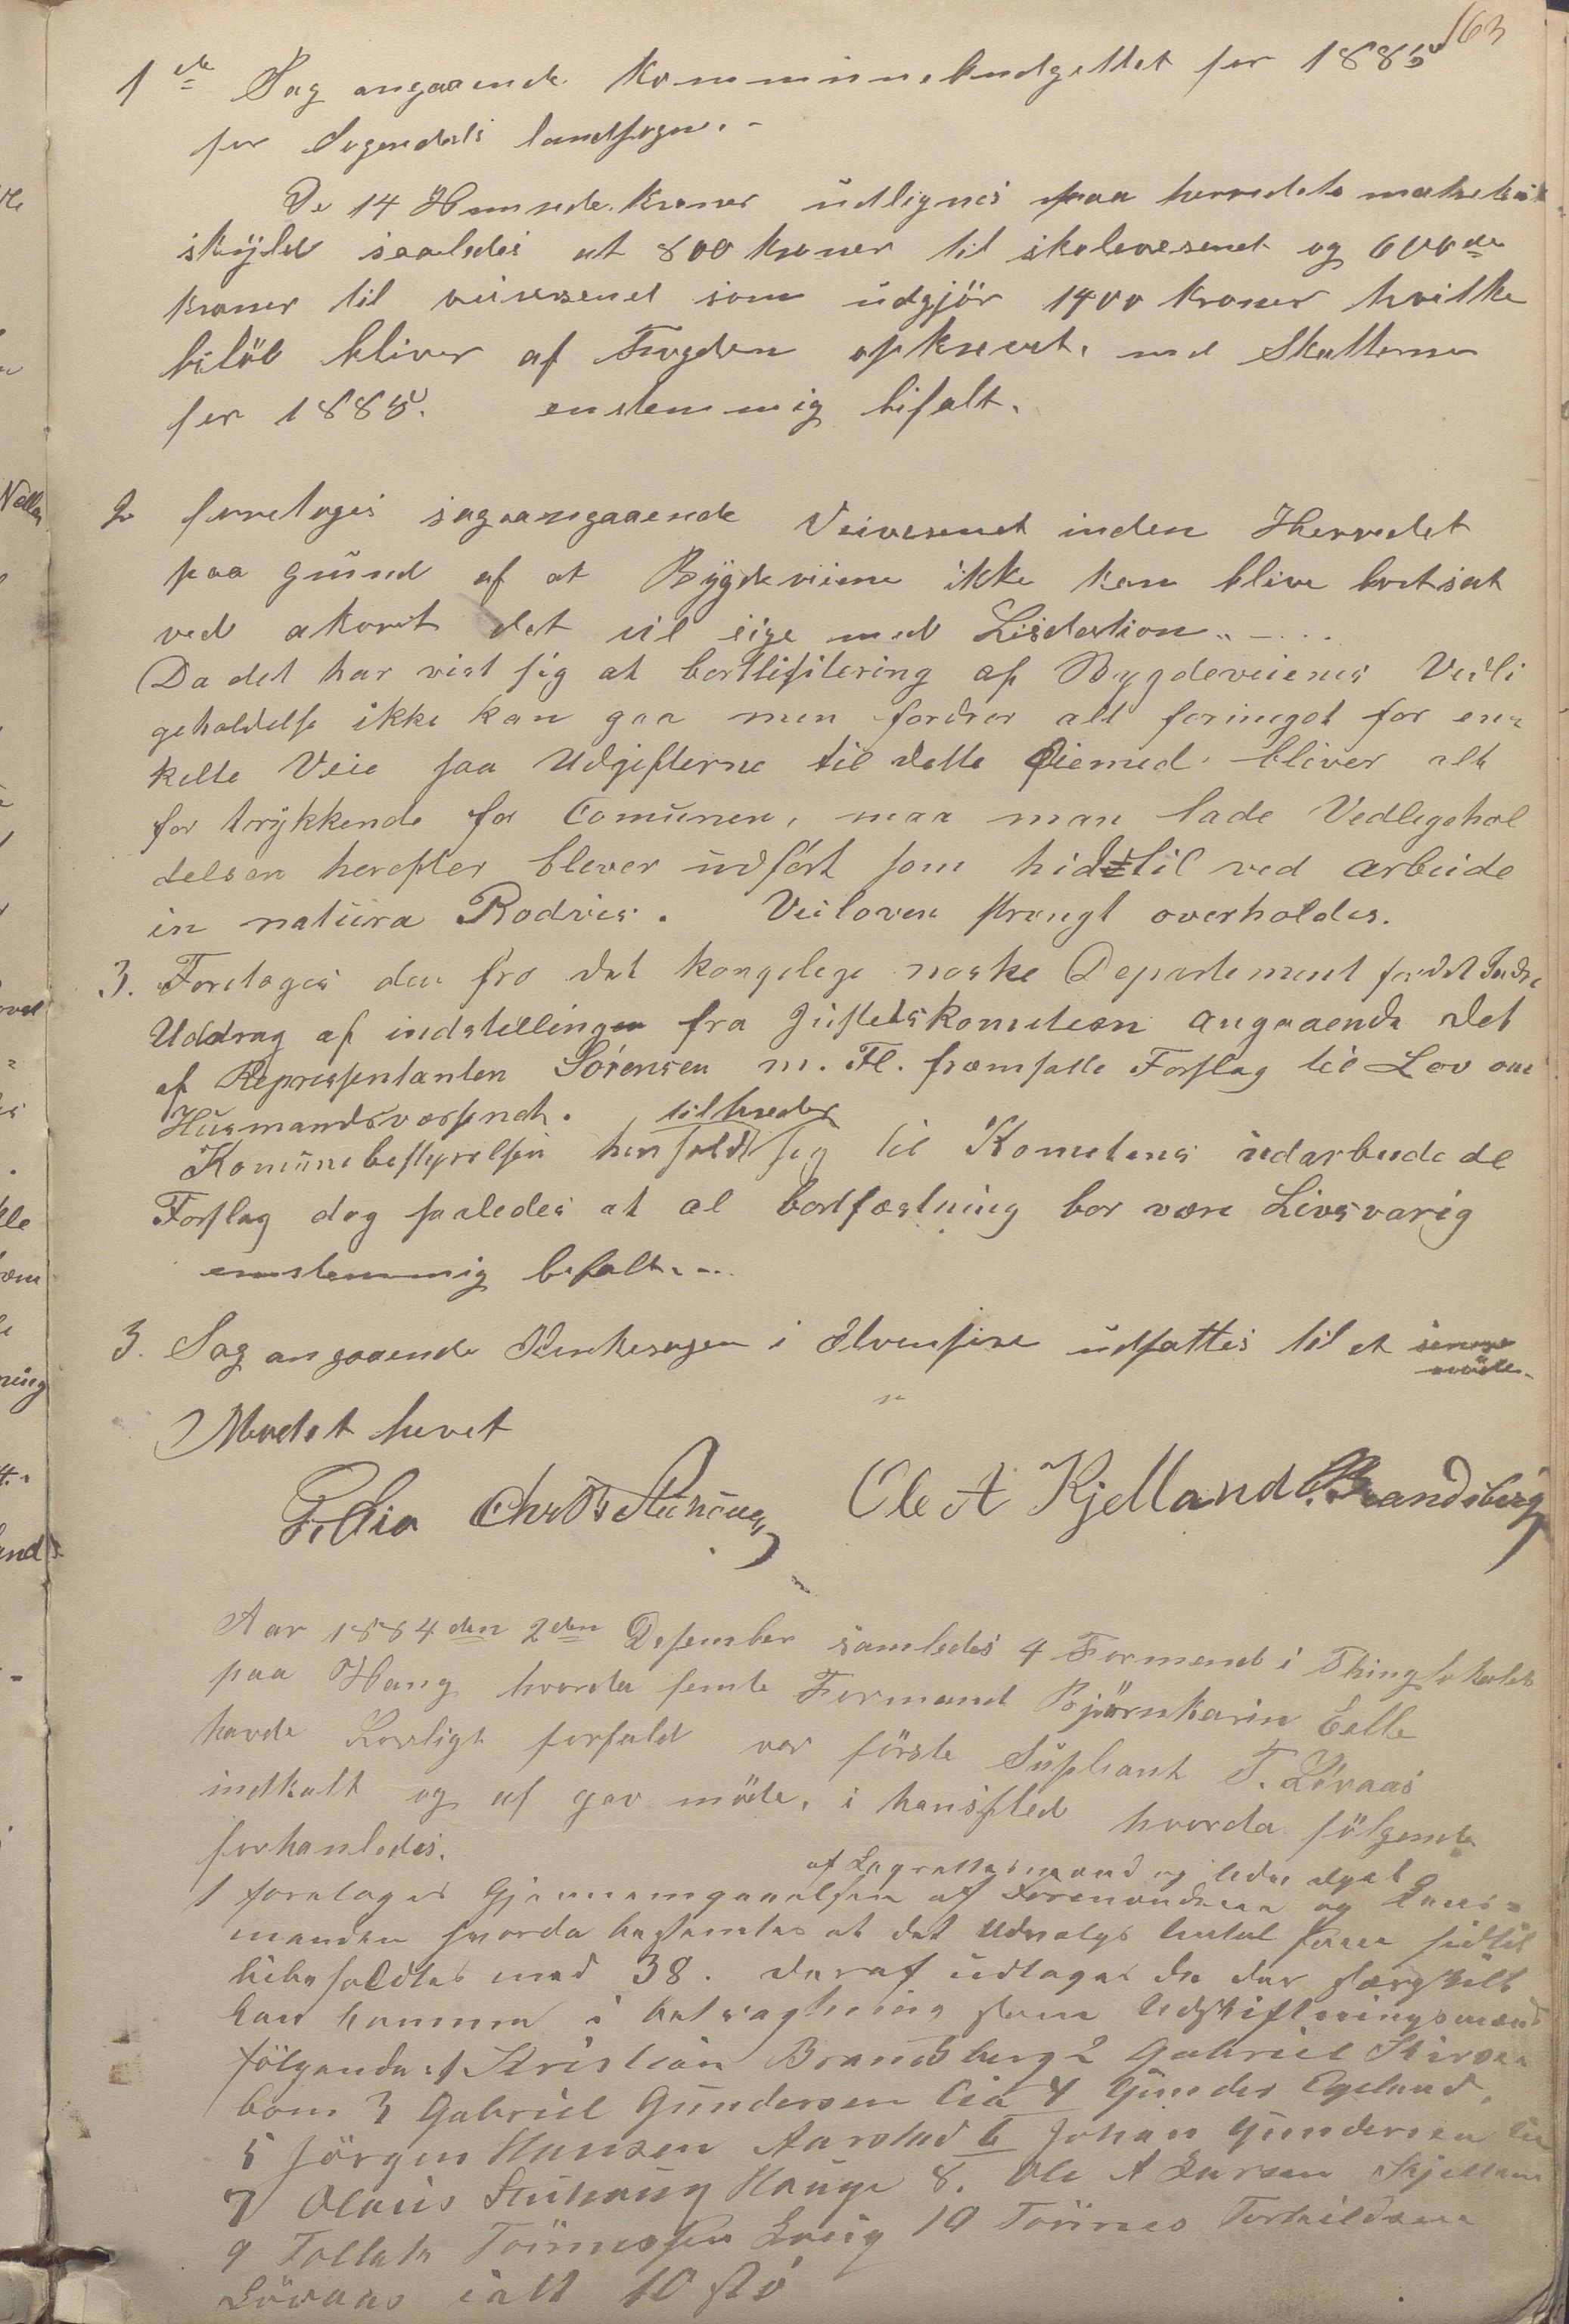 163
1ste Sag angaaende Kommunebudgettet for 1885
for Sogendals landsogn.
De 14 Hunrede Kroner udlignes paa herredets matrikul
skyld saaledes at 800 kroner til skolevesenet og 600de
kroner til veivesenet som udgjör 1400 kroner hvilke
belöb bliver af Fogden opkrevet med Skatterne
for 1885. enstemmig bifalt.
2 forretoges sag aangaaende Veivesenet inden Herredet
paa grund af at Bygdeveiene ikke kan blive bortsat
ved akort det vil sige med Lisdation
Da det har vist sig at bortlisitering af Bygdeveienes Vedli
geholdelse ikke kan gaa men fordrer alt formeget for en¬
kelte Veie saa Udgifterne til dette Öiemed bliver alt
for trykkende for Comunen, maa man lade Vedligehol
delsen herefter blever udfört som hidtil ved arbeide
in natura Rodvis. Veiloven strengt overholdes.
3. Foretoges den fra det kongelige norske Departement for det Indre
Uddrag af indstillingen fra Justetskometeen angaaende det
af Representanten Sörensen m. Fl. fremsatte Forslag til Lov om
Husmandsvæsenet. tiltreder
Komunebestyrelsen henholdt sig til Kometeens udarbeidede
Forslag dog saaledes at al bortfæstning bor være Livsvarig
enstemmig befalt.
3. Sag angaaende Kirkesagen i udsattes til et senere
möde.
Modet hevet
F. Lia Chr Ole A Kjelland C. Brandsberg
Aar 1884 den 2den Desember samledes 4 Formend i Thinglokalet
paa Haug hvorda femte Formand Björnkarin Eelle
havde Lovligt forfald var förste Supleant T. Lövaas
indkalt og af gav möde, i hansted hvorda fölgende
forhanledes.
af Lagrettesmænd og
1 foretoges Gjennemgaaelsen af Formændene og Lens¬
manden hvorda bestemtes at det Udvalgs Antal som hidtil
bibeholdtes med 38. deraf udtoges de der særskilt
kan komme i betragtning som Udskiftningsmænd
fölgende: 1 Kristian Brandsberg 2 Gabriel
bom 3 Gabriel Gundersen Lia 4 Gunder Egeland,
5 Jörgen Hansen Aarstad 6 Johan Gundersen Lia
7 Olaus Stuhaug Hauge 8. Ole A Larsen Kjelland
9 Tollak Tönnessen 10 Tönnes Torkildsen
Lövaas ialt 10 sti